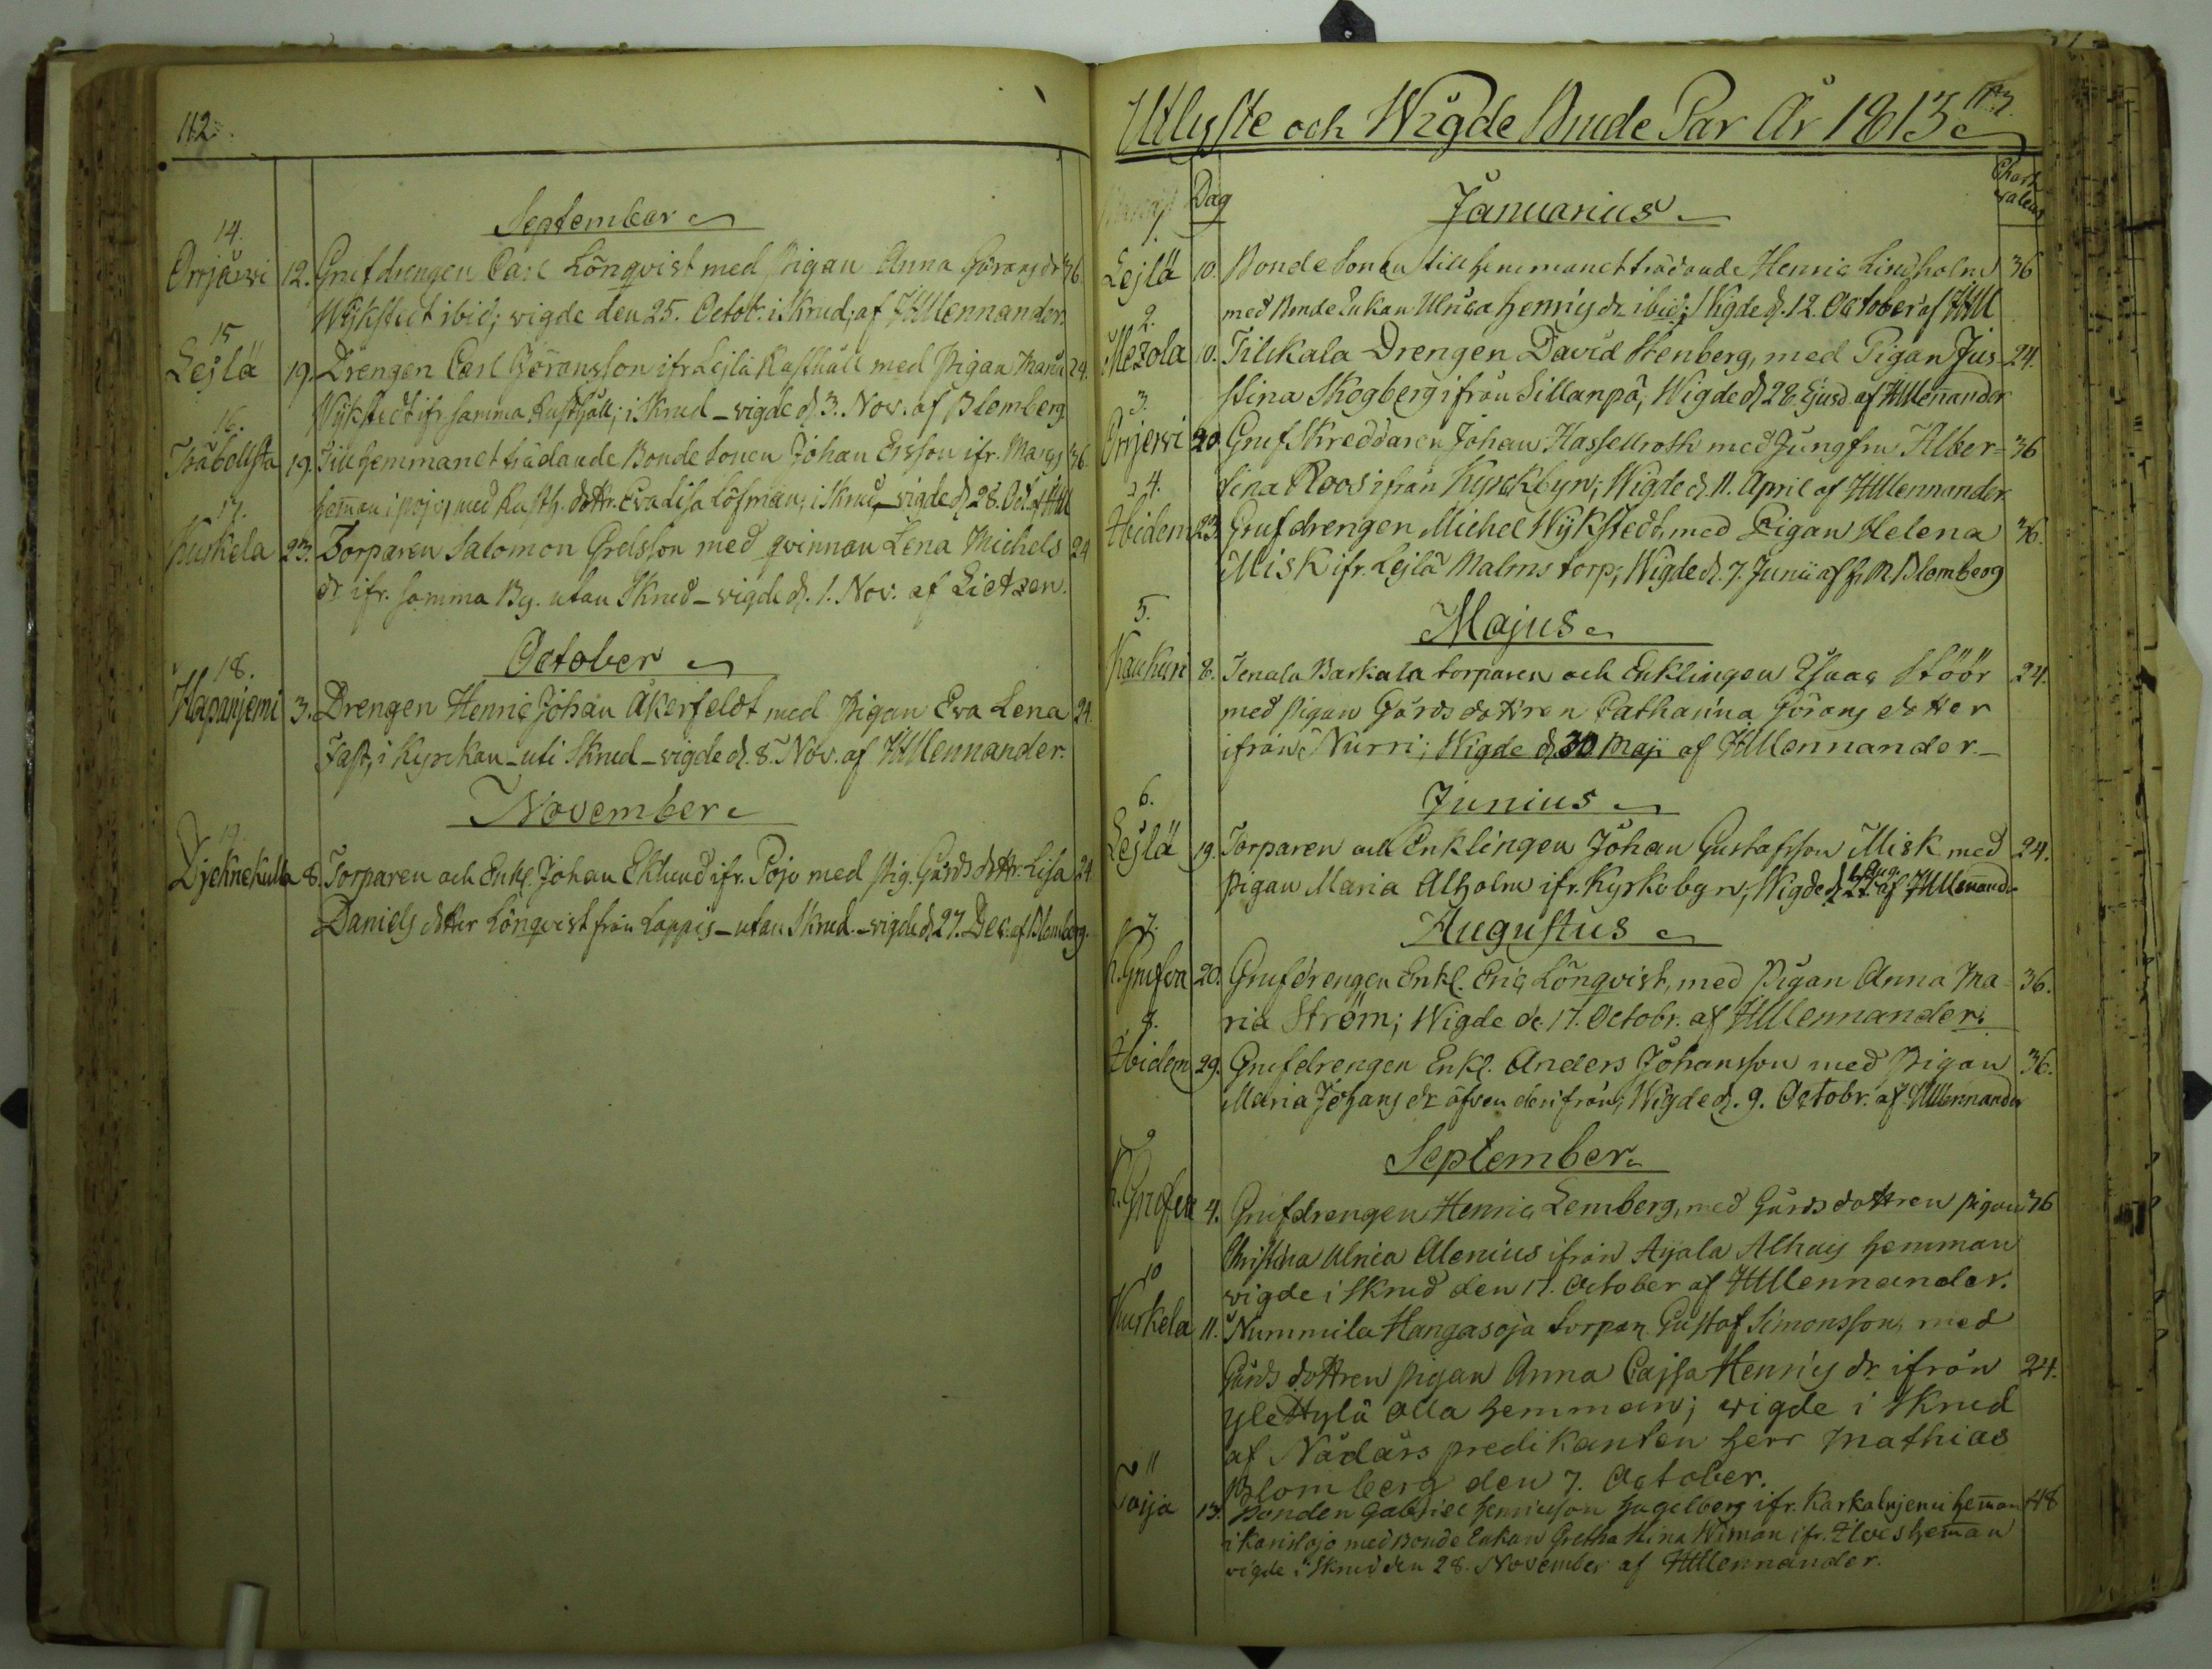 112.
September
14.
Orrjärwi 12. Grufdrengen Carl Lönqvist med Pigan Anna Görans dr 36.
Wijkstedt ibid; vigde den 25. Octob. i Skrud, af HMlennander.
15
Lejlä 19. Drengen Carl Göransson ifr. Lejlä Rusthåll med Pigan Maria 24.
Wijkstedt ifr. samma Rusthåll; i Skrud – vigde d. 3. Nov. af Blomberg
16.
Träbollsta 19. Till hemmanet trädande Bonde Sonen Johan Ersson ifr. 36.
heman i Pojo, med Rusth. dottr. Eva Lisa Löfman; i Skrud, – vigde d. 28. Oct. af HMl
17.
Kurkela 23. Torparen Salomon Grelsson med qvinnan Lena Michels 24
dr ifr. samma By. utan Skrud – vigde d. 1. Nov. af Lietzen.
October
18.
Hapanjemi 3. Drengen Henric Johan Åkerfeldt med Pigan Eva Lena 24.
Fast, i Kyrckan – uti Skrud – vigde d. 8. Nov. af HMlennander.
November
19.
Djeknekulla 8. Torparen och Enkl. Johan Eklund ifr. Pojo med Pig. Gårds dottr. Lisa 24
Daniels dotter Lönqvist från Lappis – utan Skrud. – vigde d. 27. Dec. af Blomberg.
113.
Utlyste och Wigde Brude Par År 1813
Dag
Januarius
1.
Lejlä 10. Bonde Sonen till hemmanet trädande Henric Lindholm 36
med Bonde Enkan Ulrica Henrics dr ibid; Wigde d. 12. October af HMl
2.
Mezola 10. Tilckala Drengen David Stenberg, med Pigan Jus- 24.
stina Skogberg ifrån Sillanpä; Wigde d. 28 Ejusd. af HMlennander
3.
Orrjerwi 20. Gruf Skreddaren Johan Hassellroth med Jungfru Alber- 36
tina Roos ifrån Kyrckbyn; Wigde d. 11. April af HMlennander.
4.
Ibidem 23. Grufdrengen Michel Wijkstedt, med Pigan Helena 36.
Misk ifr. Lejlä Malms torp; Wigde d. 7. Junii af h. M. Blomberg
5.
Majus
Kaukuri 8. Jenala Barkala torparen och Enklingen Isaac Stöör 24.
med Pigan Gårds dottren Catharina Görans dotter
ifrån Nurri; Wigde d. 30 Maji af HMlennander. –
6.
Junius
Lejlä 19. Torparen och Enklingen Johan Gustafsson Misk med 24.
Pigan Maria Alholm ifr. Kyrkobyn; Wigde d. 22. Aug. af HMlennander
7.
Augustus
K. Grufva 20. Grufdrengen Enkl. Eric Lönqvist, med Pigan Anna Ma- 36.
ria Ström; Wigde d. 17. Octobr. af HMlennander.
8.
Ibidem 29. Grufdrengen Enkl. Anders Johansson med Pigan 36.
Maria Johans dr äfven derifrån; Wigde d. 9. Octobr. af HMlennander
September
9
K. Grufva 4. Grufdrengen Henric Lemberg, med Gårds dottren Pigan 36
Christina Ulrica Alenius ifrån Aijala Alhais hemman
vigde i Skrud den 17. October af HMlennander.
10
Kurkela 11. Nummila Hangasoja torpar. Gustaf Simonsson, med
Gårds dottren Pigan Anna Cajsa Henrics dr ifrån 24.
yle Hylä Olla hemman; vigde i Skrud
af Nådårs predikanten herr Mathias
Blomberg den 7. October.
11
Toija 13. Bonden Gabriel Henricsson Hagelberg ifr. Karkalnjemi heman 48
i Karislojo med Bonde Enkan Gretha Stina Wiman ifr. Ilves heman
vigde i Skrud den 28. November af HMlennander.